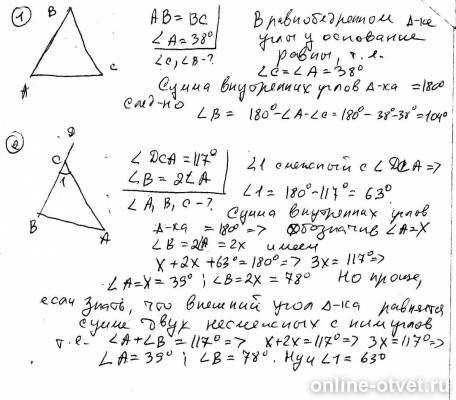 ① B AB = BC В равнобедренном Δ-ке
∠A = 38° углы у основание
∠C, ∠B - ? равны, т.е.
A C ∠C = ∠A = 38°
Сумма внутренних углов Δ-ка = 180°
след-но
∠B = 180° - ∠A - ∠C = 180° - 38° - 38° = 104°
② D
C ∠DCA = 117° ∠1 смежный с ∠DCA =>
1 ∠B = 2∠A ∠1 = 180° - 117° = 63°
B ∠A, B, C - ? Сумма внутренних углов
A Δ-ка = 180° => Обозначив ∠A = X
∠B = 2∠A = 2x имеем
x + 2x + 63° = 180° => 3x = 117° =>
∠A = x = 39° ; ∠B = 2x = 78° Но проще,
если знать, что внешний угол Δ-ка равняется
сумме двух несмежных с ним углов
т.е. ∠A + ∠B = 117° => x + 2x = 117° => 3x = 117° =>
∠A = 39° ; ∠B = 78°. Ну и ∠1 = 63°
online-otvet.ru